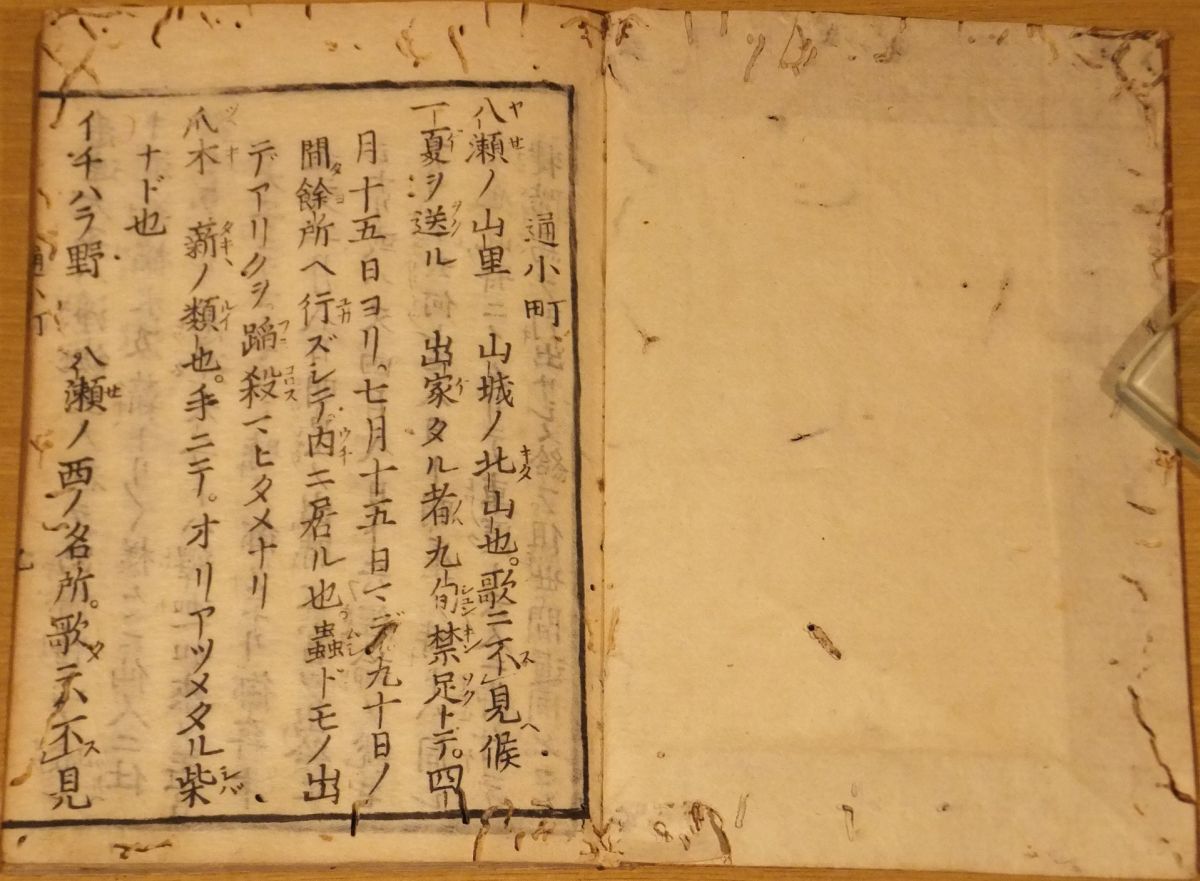 通小町
八瀬ノ山里 山城ノ北山也。歌ニ不見候
一夏ヲ送ル 出家タル者九旬禁足トテ。四
月十五日ヨリ。七月十五日マデ九十日ノ
間餘所ヘ行ズシテ。内ニ居ル也。蟲ドモノ出
デアリクヲ。蹈殺マヒタメナリ
爪木 薪ノ類也。手ニテ。オリアツメタル柴
ナド也
イチハラ野 八瀬ノ西ノ名所。歌ニハ不見